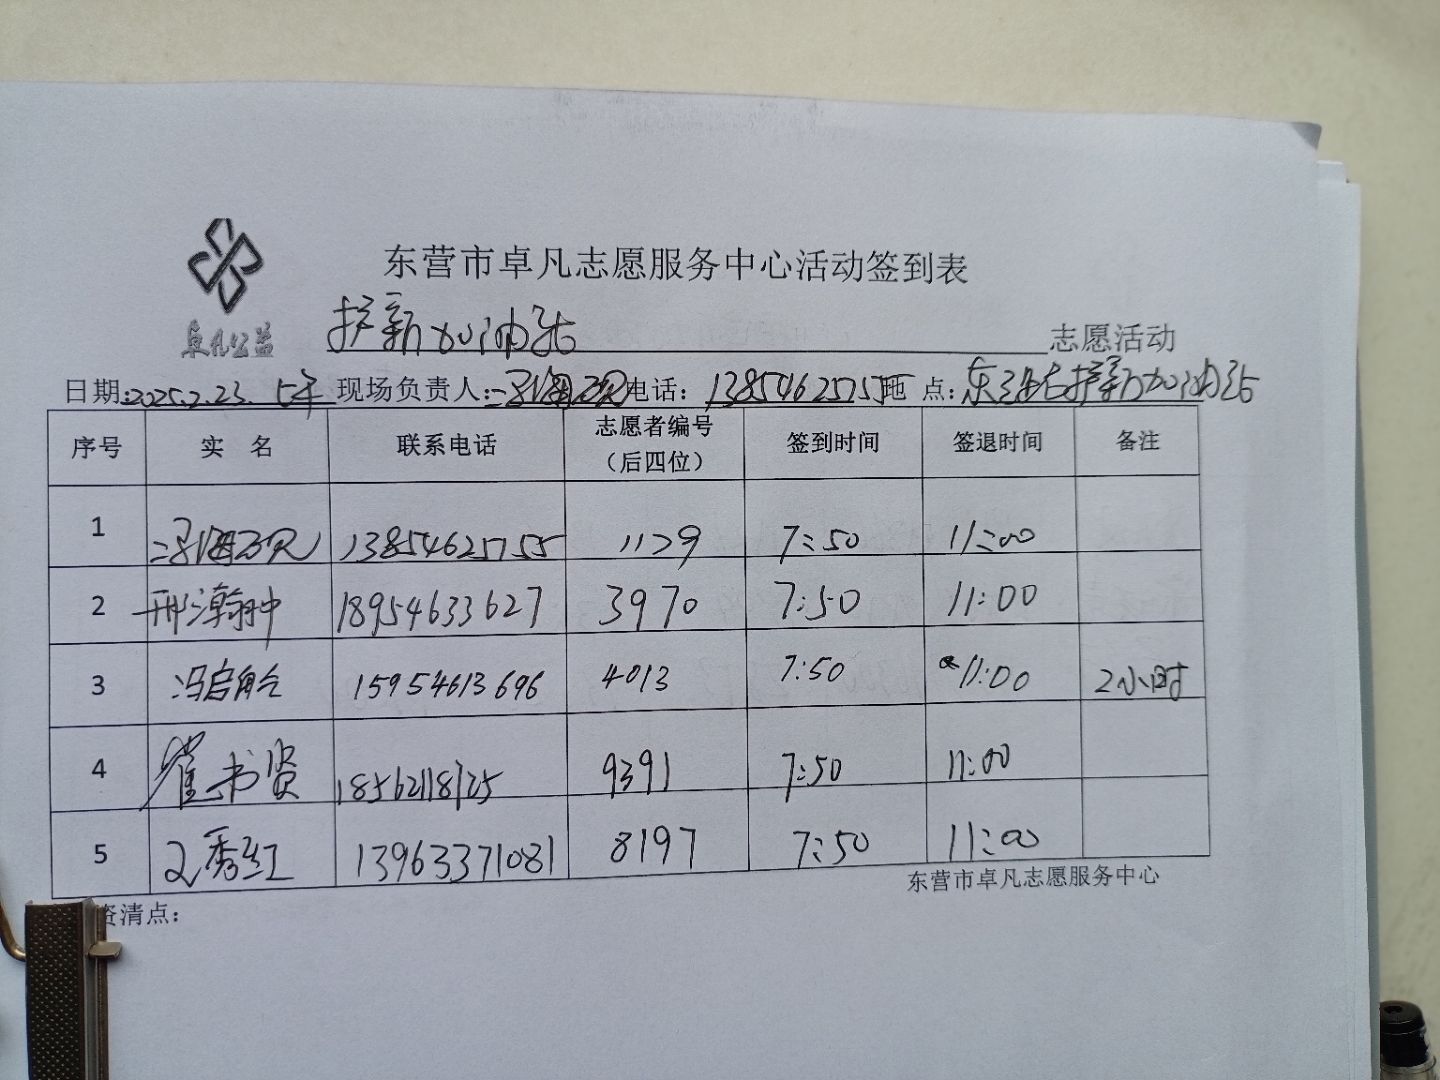 东营市卓凡志愿服务中心活动签到表
卓凡公益
护新加油站 志愿活动
日期:2025.2.23. 现场负责人: 电话:13854625755 地点: 护新加油站
序号 实 名 联系电话 志愿者编号（后四位） 签到时间 签退时间 备注
1 13854625755 1129 7:50 11:00
2 邢瀚翀 18954633627 3970 7:50 11:00
3 冯启能 15954613696 4013 7:50 11:00 2小时
4 崔书贤 18562118125 9391 7:50 11:00
5 秀红 13963371081 8197 7:50 11:00
东营市卓凡志愿服务中心
资清点：